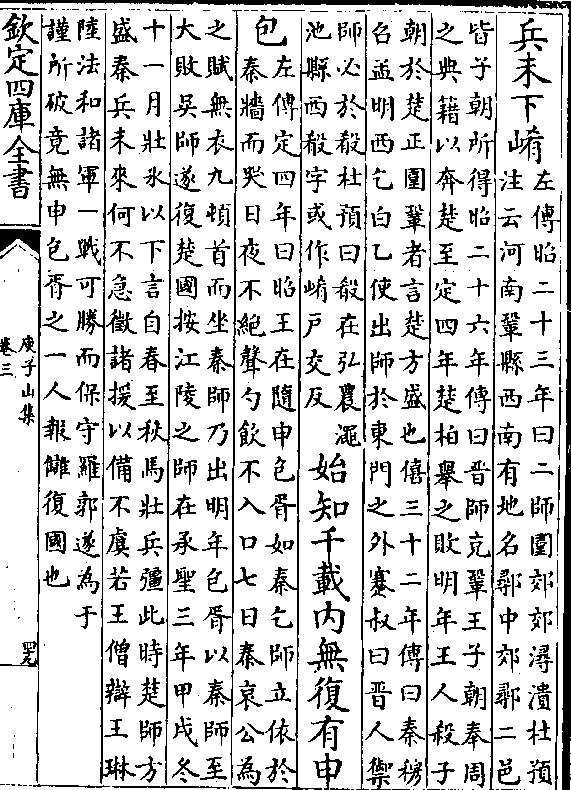 兵未下崤
左傳昭二十三年曰二師圍郊郊潯潰杜預
注云河南鞏縣西南有地名鄩中郊鄩二邑
皆子朝所得昭二十六年傳曰晋師克鞏王子朝奉周
之典籍以奔楚至定四年楚柏舉之敗明年王人殺子
朝於楚正圍鞏者言楚方盛也僖三十二年傳曰秦穆
召孟明西乞白乙使出師於東門之外蹇叔曰晋人禦
師必於殽杜預曰殽在弘農澠
池縣西殽字或作崤戶交反
始知千載内無復有申
包
左傳定四年曰昭王在隨申包胥如秦乞師立依於
秦牆而哭日夜不絕聲勺飲不入口七日秦哀公為
之賦無衣九頓首而坐秦師乃出明年包胥以秦師至
大敗吳師遂復楚國按江陵之師在承聖三年甲戌冬
十一月壯氷以下言自春至秋馬壯兵彊此時楚師方
盛秦兵未來何不急徵諸援以備不虞若王僧辯王琳
陸法和諸軍一戰可勝而保守羅郭遂為于
謹所破竟無申包胥之一人報讎復國也
欽定四庫全書
庾子山集
卷三
四九